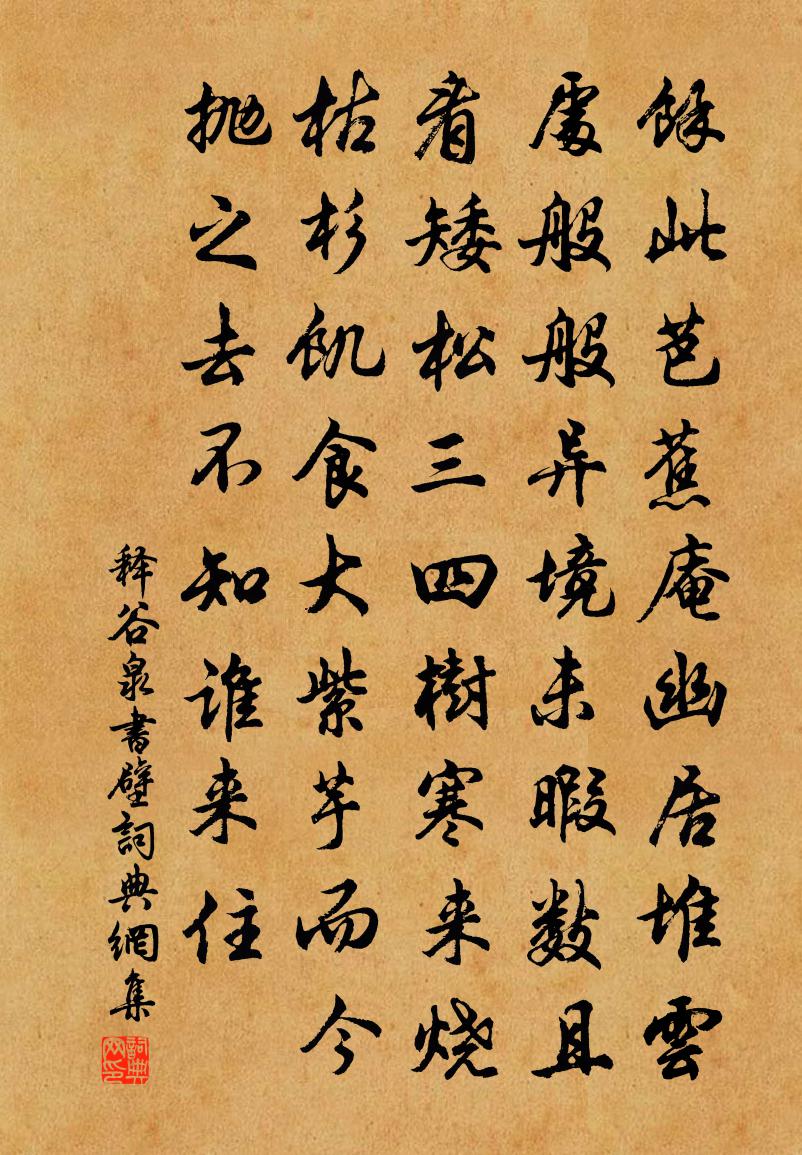 餘此芭蕉庵幽居堆雲
處般般异境未暇数且
看矮松三四樹寒来烧
枯杉飢食大紫芋而今
抛之去不知谁来住
释谷泉書壁詞典網集
詞典网印